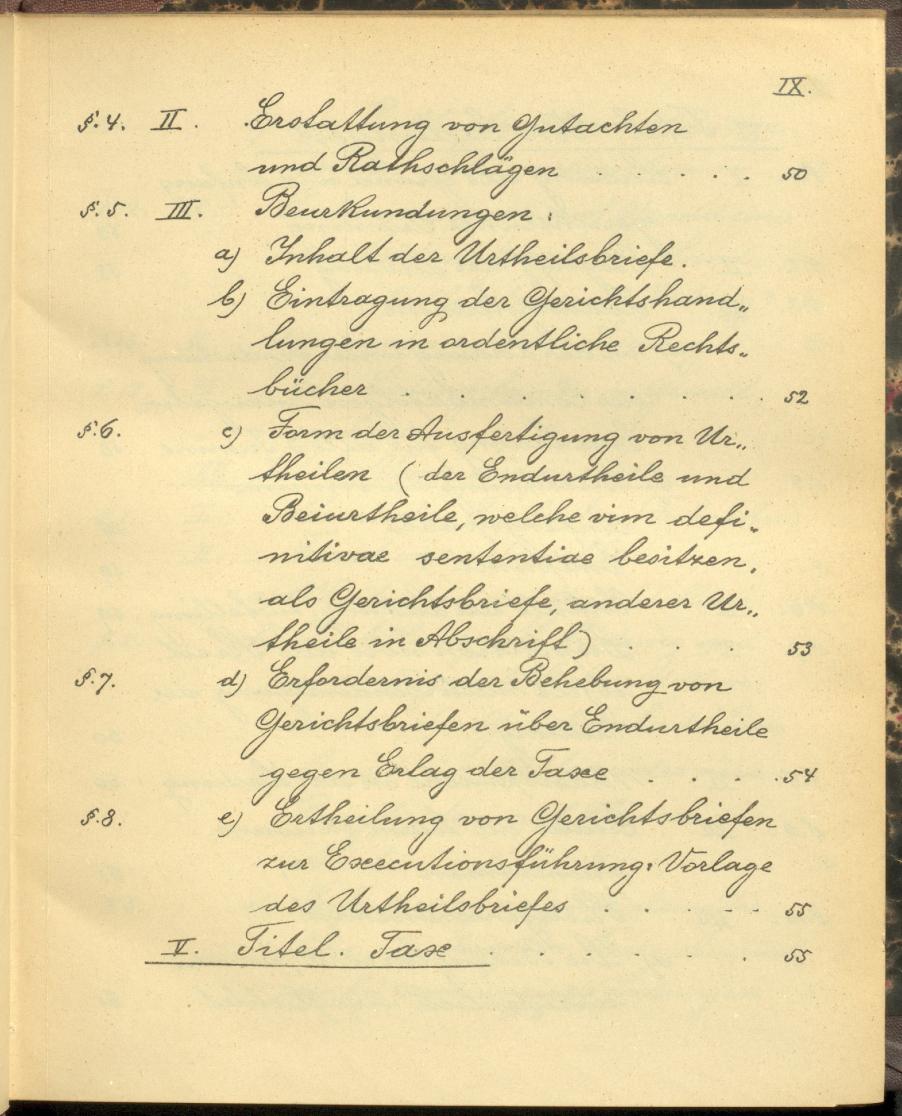 IX.
§.4. II. Erstattung von Gutachten
und Rathschlägen . . . . . 50
§.5. III. Beurkundungen:
a) Inhalt der Urtheilsbriefe.
b) Eintragung der Gerichtshand„
lungen in ordentliche Rechts„
bücher . . . . . . . . 52
§.6. c) Form der Ausfertigung von Ur„
theilen (der Endurtheile und
Beiurtheile, welche vim defi„
nitivae sententiae besitzen,
als Gerichtsbriefe, anderer Ur„
theile in Abschrift) . . . 53
§.7. d) Erfordernis der Behebung von
Gerichtsbriefen über Endurtheile
gegen Erlag der Taxe . . . . 54
§.8. e) Ertheilung von Gerichtsbriefen
zur Executionsführung: Vorlage
des Urtheilsbriefes . . . - - 55
V. Titel. Taxe . . . . . . 55